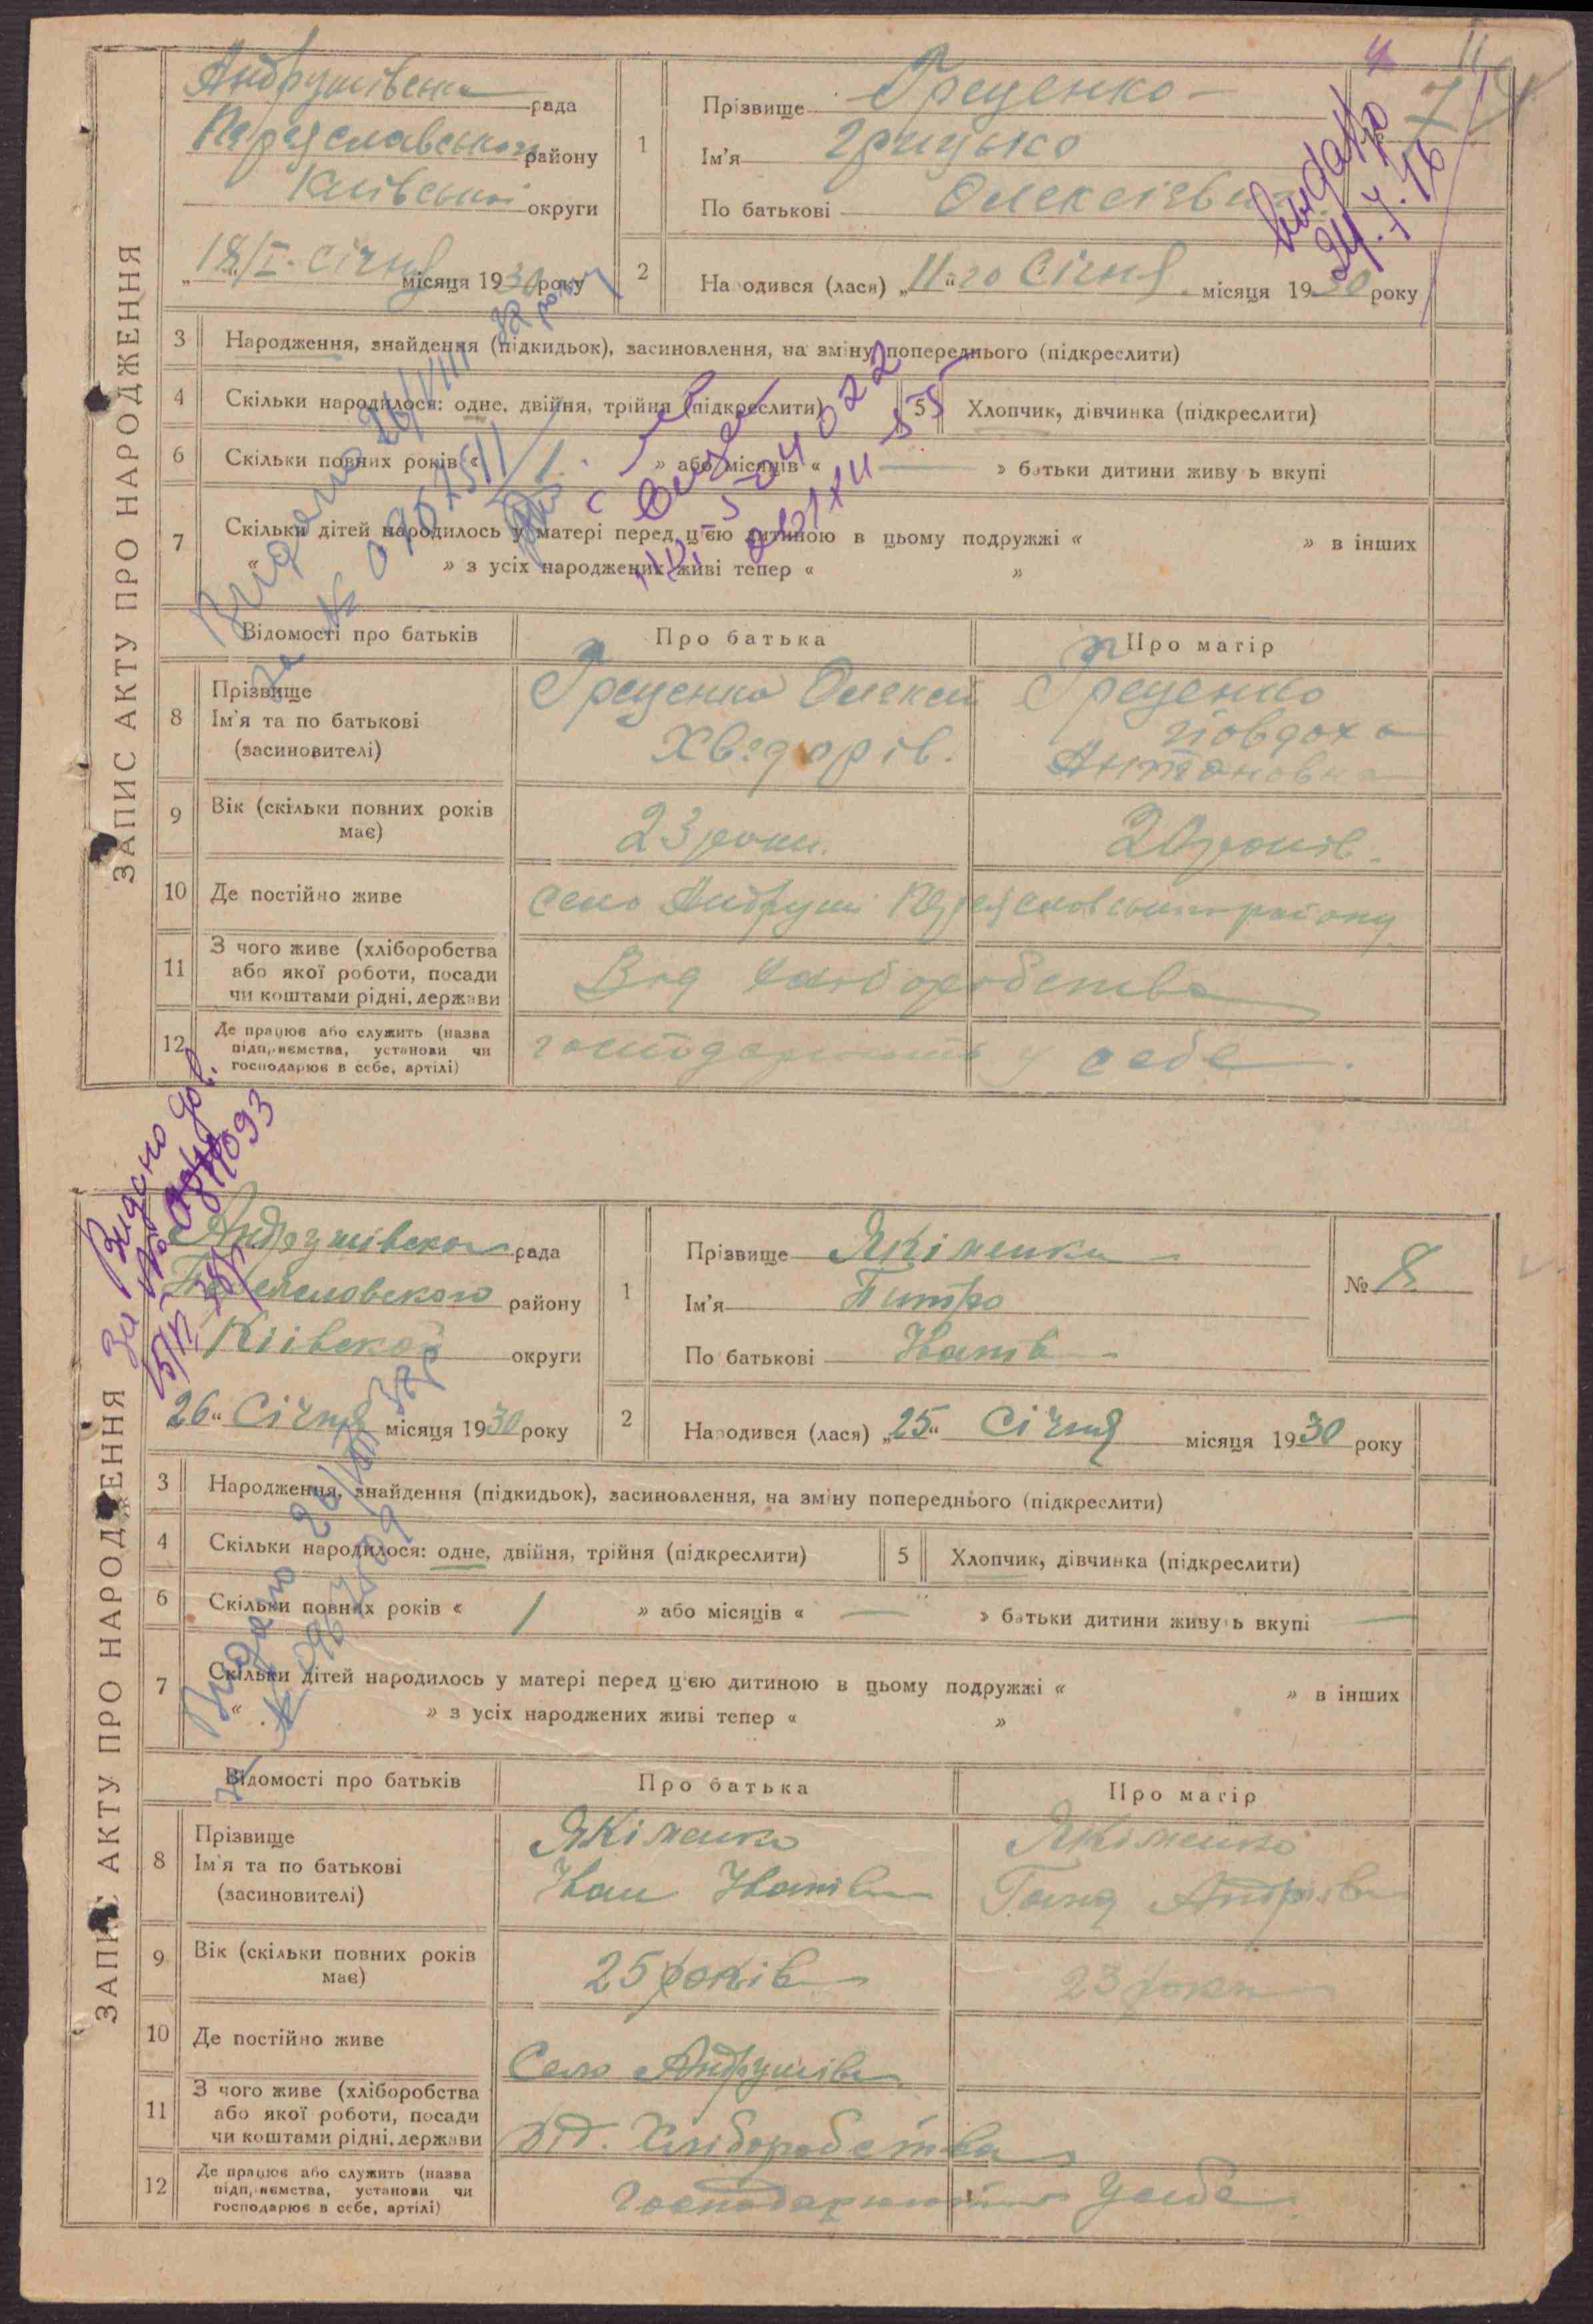 ЗАПИС АКТУ ПРО НАРОДЖЕННЯ
Андрушівська рада
Переяславського району
Київської округи
„18/I. Січня місяця 1930 року
1
Прізвище Греценко
Ім'я Грицько
По батькові Олексієвич
7
2
Народився (лася) „11"го Січня місяця 1930 року
3 Народження, знайдення (підкидьок), засиновлення, на зміну попереднього (підкреслити)
4 Скільки народилося: одне, двійня, трійня (підкреслити)
5 Хлопчик, дівчинка (підкреслити)
6 Скільки повних років « 1 » або місяців « — » батьки дитини живуть вкупі
7 Скільки дітей народилось у матері перед цією дитиною в цьому подружжі « » в інших
« » з усіх народжених живі тепер « »
Відомості про батьків
Про батька
Про матір
8 Прізвище
Ім'я та по батькові
(засиновителі)
Греценко Олексій
Хведорів.
Греценко
Явдоха
Антоновна
9 Вік (скільки повних років має)
23 роки.
20 років.
10 Де постійно живе
село Андруші Переяславського району
11 З чого живе (хліборобства
або якої роботи, посади
чи коштами рідні, держави
Від хліборобства
12 Де працює або служить (назва
підприємства, установи чи
господарює в себе, артілі)
господарюють у себе.
Видано 26/VIII 37 року
Видано дов.
За №
ЗАПИС АКТУ ПРО НАРОДЖЕННЯ
Андрушівської рада
району
Київської округи
26" Січня місяця 1930 року
1
Прізвище Якіменко
Ім'я Питро
По батькові Іванів
№ 8
2
Народився (лася) „25" Січня місяця 1930 року
3 Народження, знайдення (підкидьок), засиновлення, на зміну попереднього (підкреслити)
4 Скільки народилося: одне, двійня, трійня (підкреслити)
5 Хлопчик, дівчинка (підкреслити)
6 Скільки повних років « 1 » або місяців « — » батьки дитини живуть вкупі —
7 Скільки дітей народилось у матері перед цією дитиною в цьому подружжі « » в інших
« » з усіх народжених живі тепер « »
Видано
Відомості про батьків
Про батька
Про матір
8 Прізвище
Ім'я та по батькові
(засиновителі)
Якіменко
Іван Іванів
Якіменко
Ганя Андріівн
9 Вік (скільки повних років має)
25 років
23 роки
10 Де постійно живе
Село Андрушівка
11 З чого живе (хліборобства
або якої роботи, посади
чи коштами рідні, держави
Від. Хліборобства
12 Де працює або служить (назва
підприємства, установи чи
господарює в себе, артілі)
Господарюють у себе